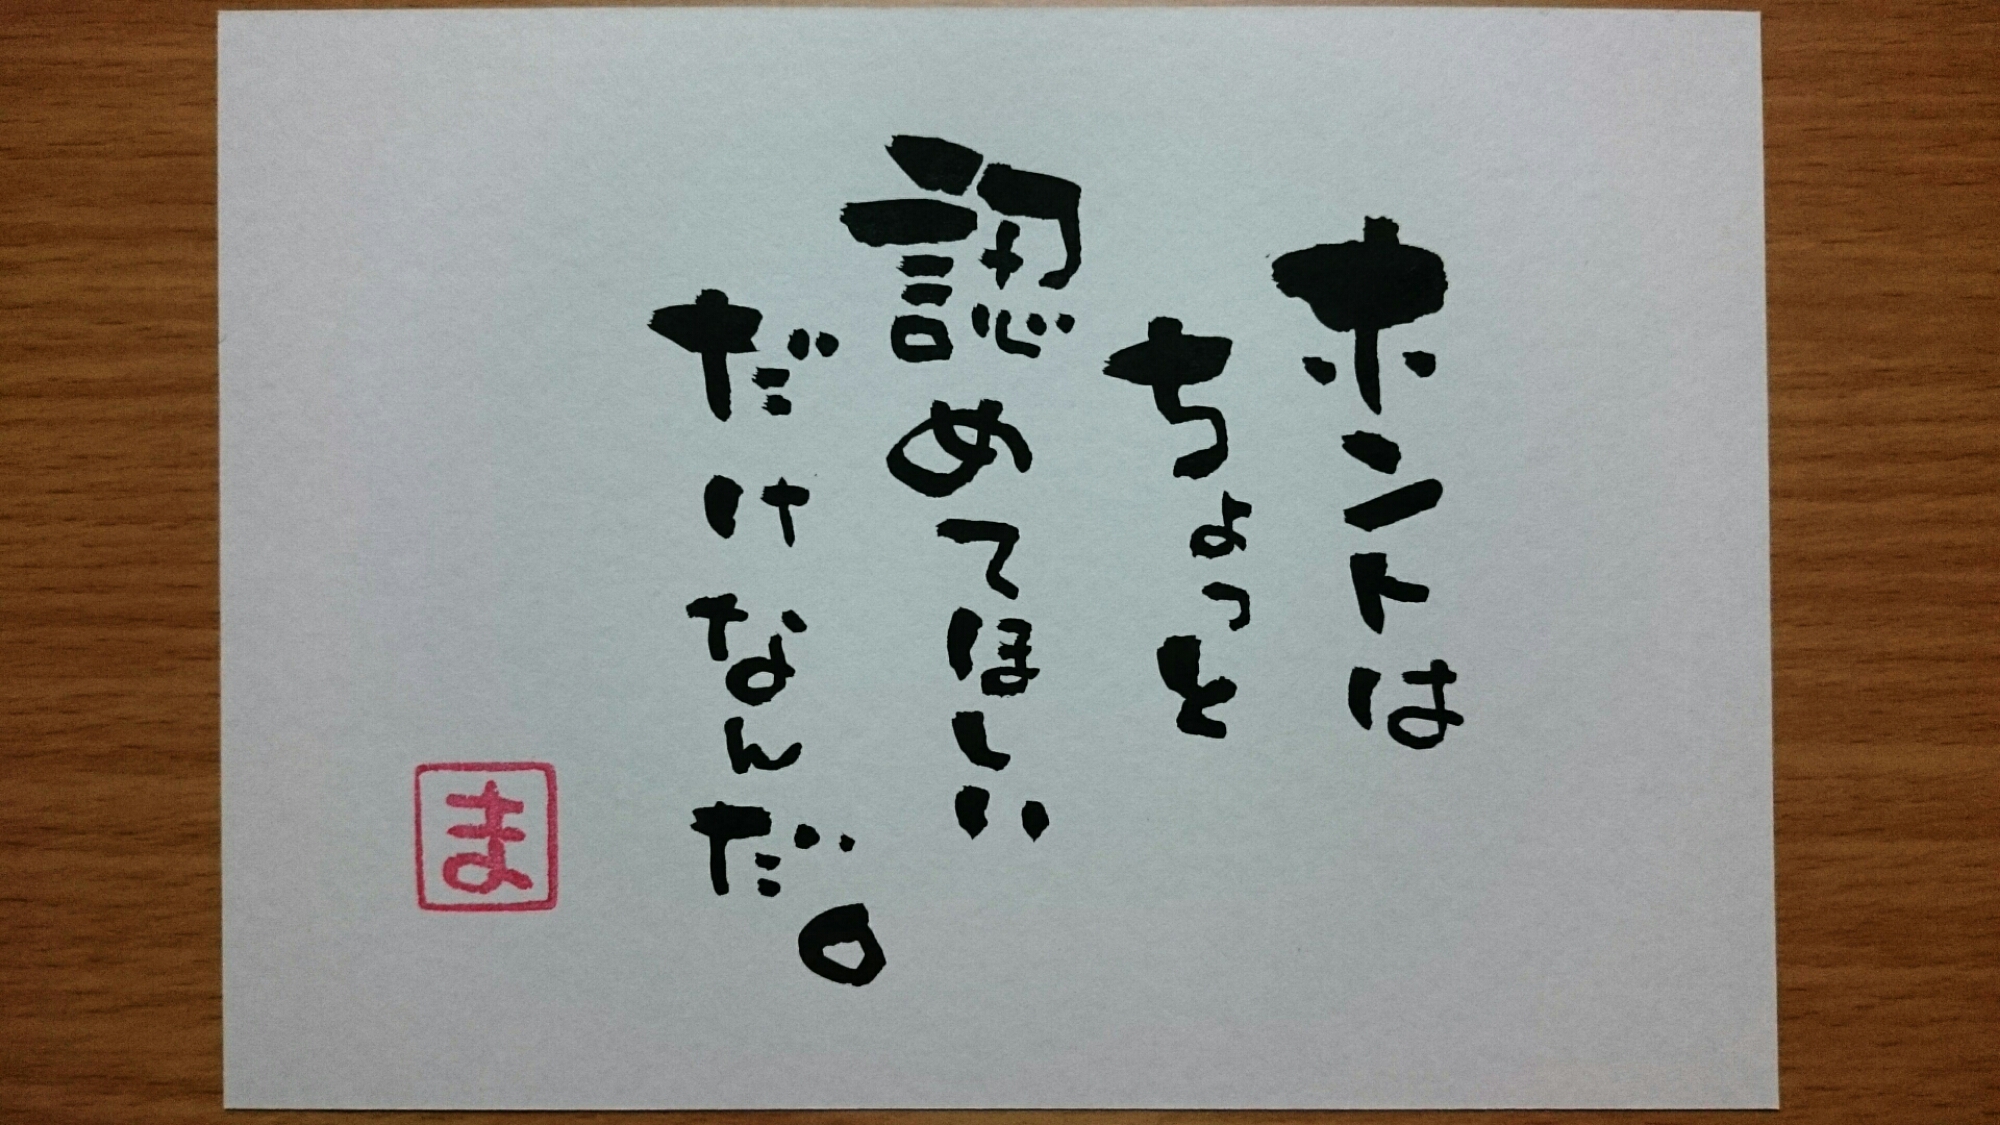 ホントは
ちょっと
認めてほしい
だけなんだ。
ま